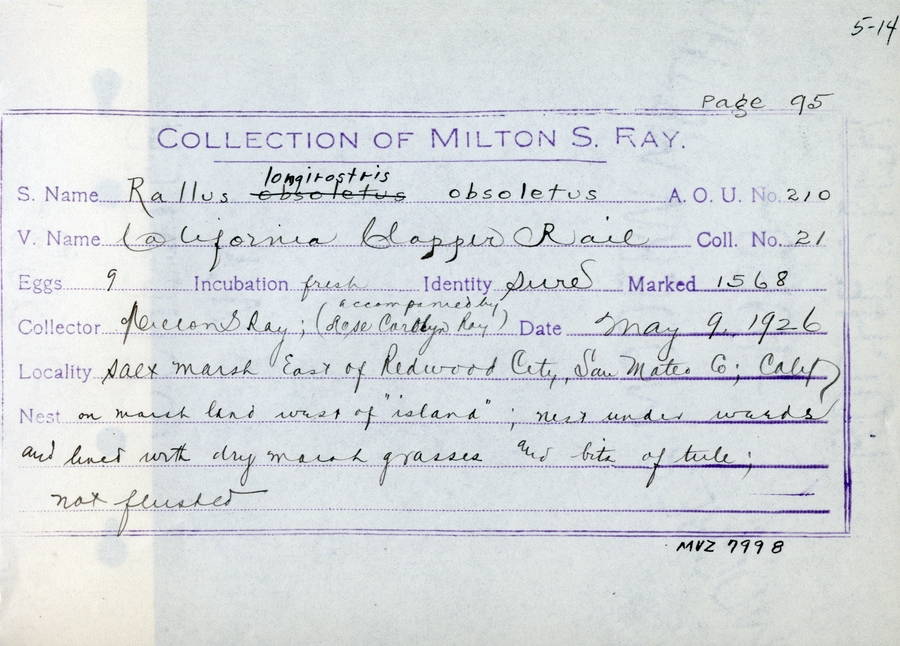 5-14
Page 95
COLLECTION OF MILTON S. RAY.
longirostris
S. Name Rallus obsoletus obsoletus A. O. U. No. 210
V. Name California Clapper Rail Coll. No. 21
Eggs 9 Incubation fresh Identity Sure Marked 1568
accompanied by
Collector Milton S Ray; (Rose Carolyn Ray) Date May 9, 1926
Locality salt marsh East of Redwood City, San Mateo Co; Calif
Nest on marsh land west of "island"; nest under weeds
and lined with dry marsh grasses and bits of tule;
not flushed
MVZ 7998